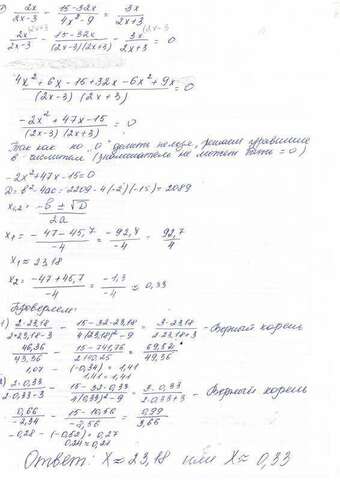 2x/(2x-3) - (15-32x)/(4x²-9) = 3x/(2x+3)
2x/(2x-3) - (15-32x)/((2x-3)(2x+3)) - 3x/(2x+3) = 0
(4x²+6x-15+32x-6x²+9x)/((2x-3)(2x+3)) = 0
(-2x²+47x-15)/((2x-3)(2x+3)) = 0
Так как на "0" делить нельзя, решаем уравнение
в числителе (знаменатель не может быть = 0)
-2x²+47x-15=0
D=b²-4ac=2209-4(-2)(-15)=2089
x₁,₂ = (-b±√D)/2a
x₁ = (-47-45,7)/-4 = -92,7/-4 = 92,7/4
x₁ ≈ 23,18
x₂ = (-47+45,7)/-4 = -1,3/-4 ≈ 0,33
Проверяем:
1) 2·23,18/(2·23,18-3) - (15-32·23,18)/(4(23,18)²-9) = 3·23,18/(2·23,18+3) - Верный корень
46,36/43,36 - (15-741,76)/2140,25 = 69,54/49,36
1,07 - (-0,34) = 1,41
1,41 = 1,41
2) 2·0,33/(2·0,33-3) - (15-32·0,33)/(4(0,33)²-9) = 3·0,33/(2·0,33+3) - Верный корень
0,66/-2,34 - (15-10,56)/-8,56 = 0,99/3,66
-0,28 - (-0,52) = 0,27
Ответ: x ≈ 23,18 или x ≈ 0,33